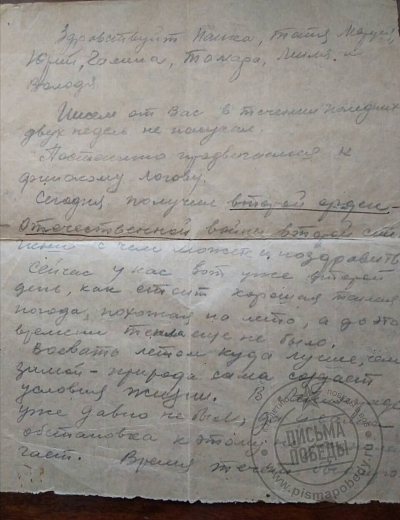 Здравствуйт Мамка, Татя Маруся,
Юрий, Галина, Тамара, Миля и
Володя.
Писем от Вас в течении последних
двух недель не получаю.
Постоянно продвигаемся к
финскому логову.
Сегодня получил второй орден -
Отечественной войны второй сте
пени с чем можете и поздравить
Сейчас у нас вот уже второй
день, как стоит хорошая теплая
погода, похожая на лето, а до то
времени тепла еще не было.
Воевать летом куда лучше, чем
зимой - природа сама создает
условия жизни. В
уже давно не был, да и
обстановка к этому не
гает. Время течет
ПИСЬМА
ПОБЕДЫ
www.pismapobedy.ru